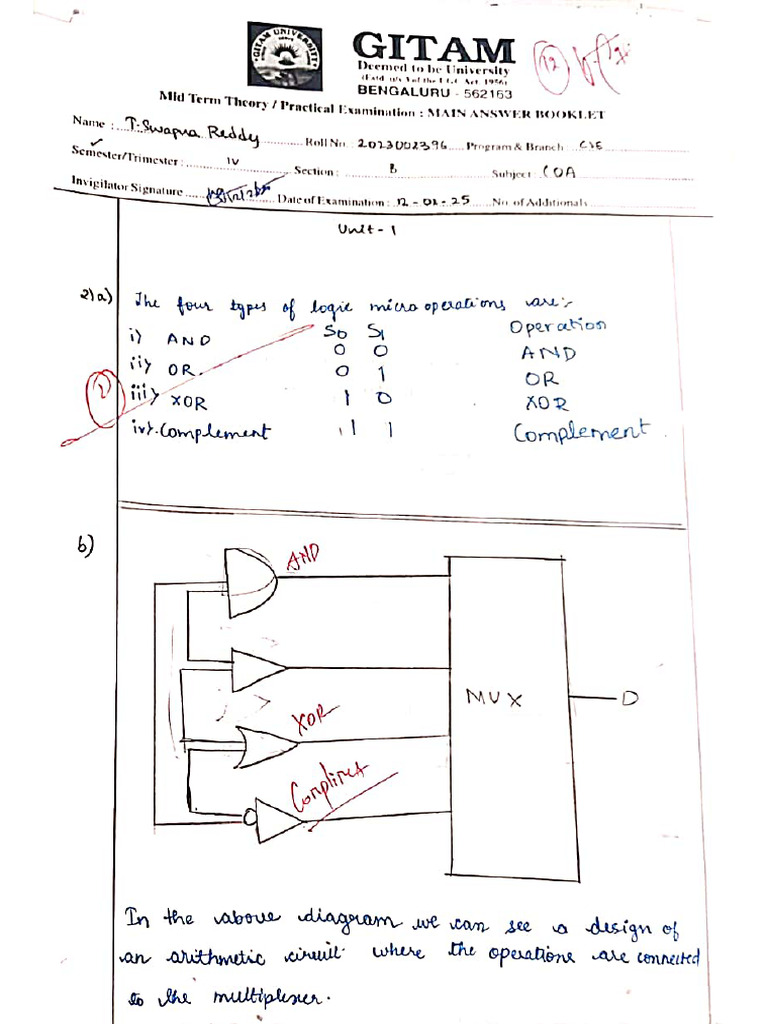 GITAM UNIVERSITY
GITAM
Deemed to be University
(Estd. u/s 3 of the UGC Act, 1956)
BENGALURU - 562163
12
Mid Term Theory / Practical Examination : MAIN ANSWER BOOKLET
Name : T. Swapna Reddy Roll No. 2023002396 Program & Branch CSE
Semester/Trimester : IV Section : B Subject : COA
Invigilator Signature Date of Examination : 12-02-25 No. of Additionals
Unit - 1
2)a) The four types of logic micro operations are:-
i) AND S0 S1 Operation
0 0 AND
ii) OR 0 1 OR
iii) XOR 1 0 XOR
iv). Complement 1 1 Complement
b)
AND
MUX
D
XOR
In the above diagram we can see a design of
an arithmetic circuit where the operations are connected
to the multiplexer.